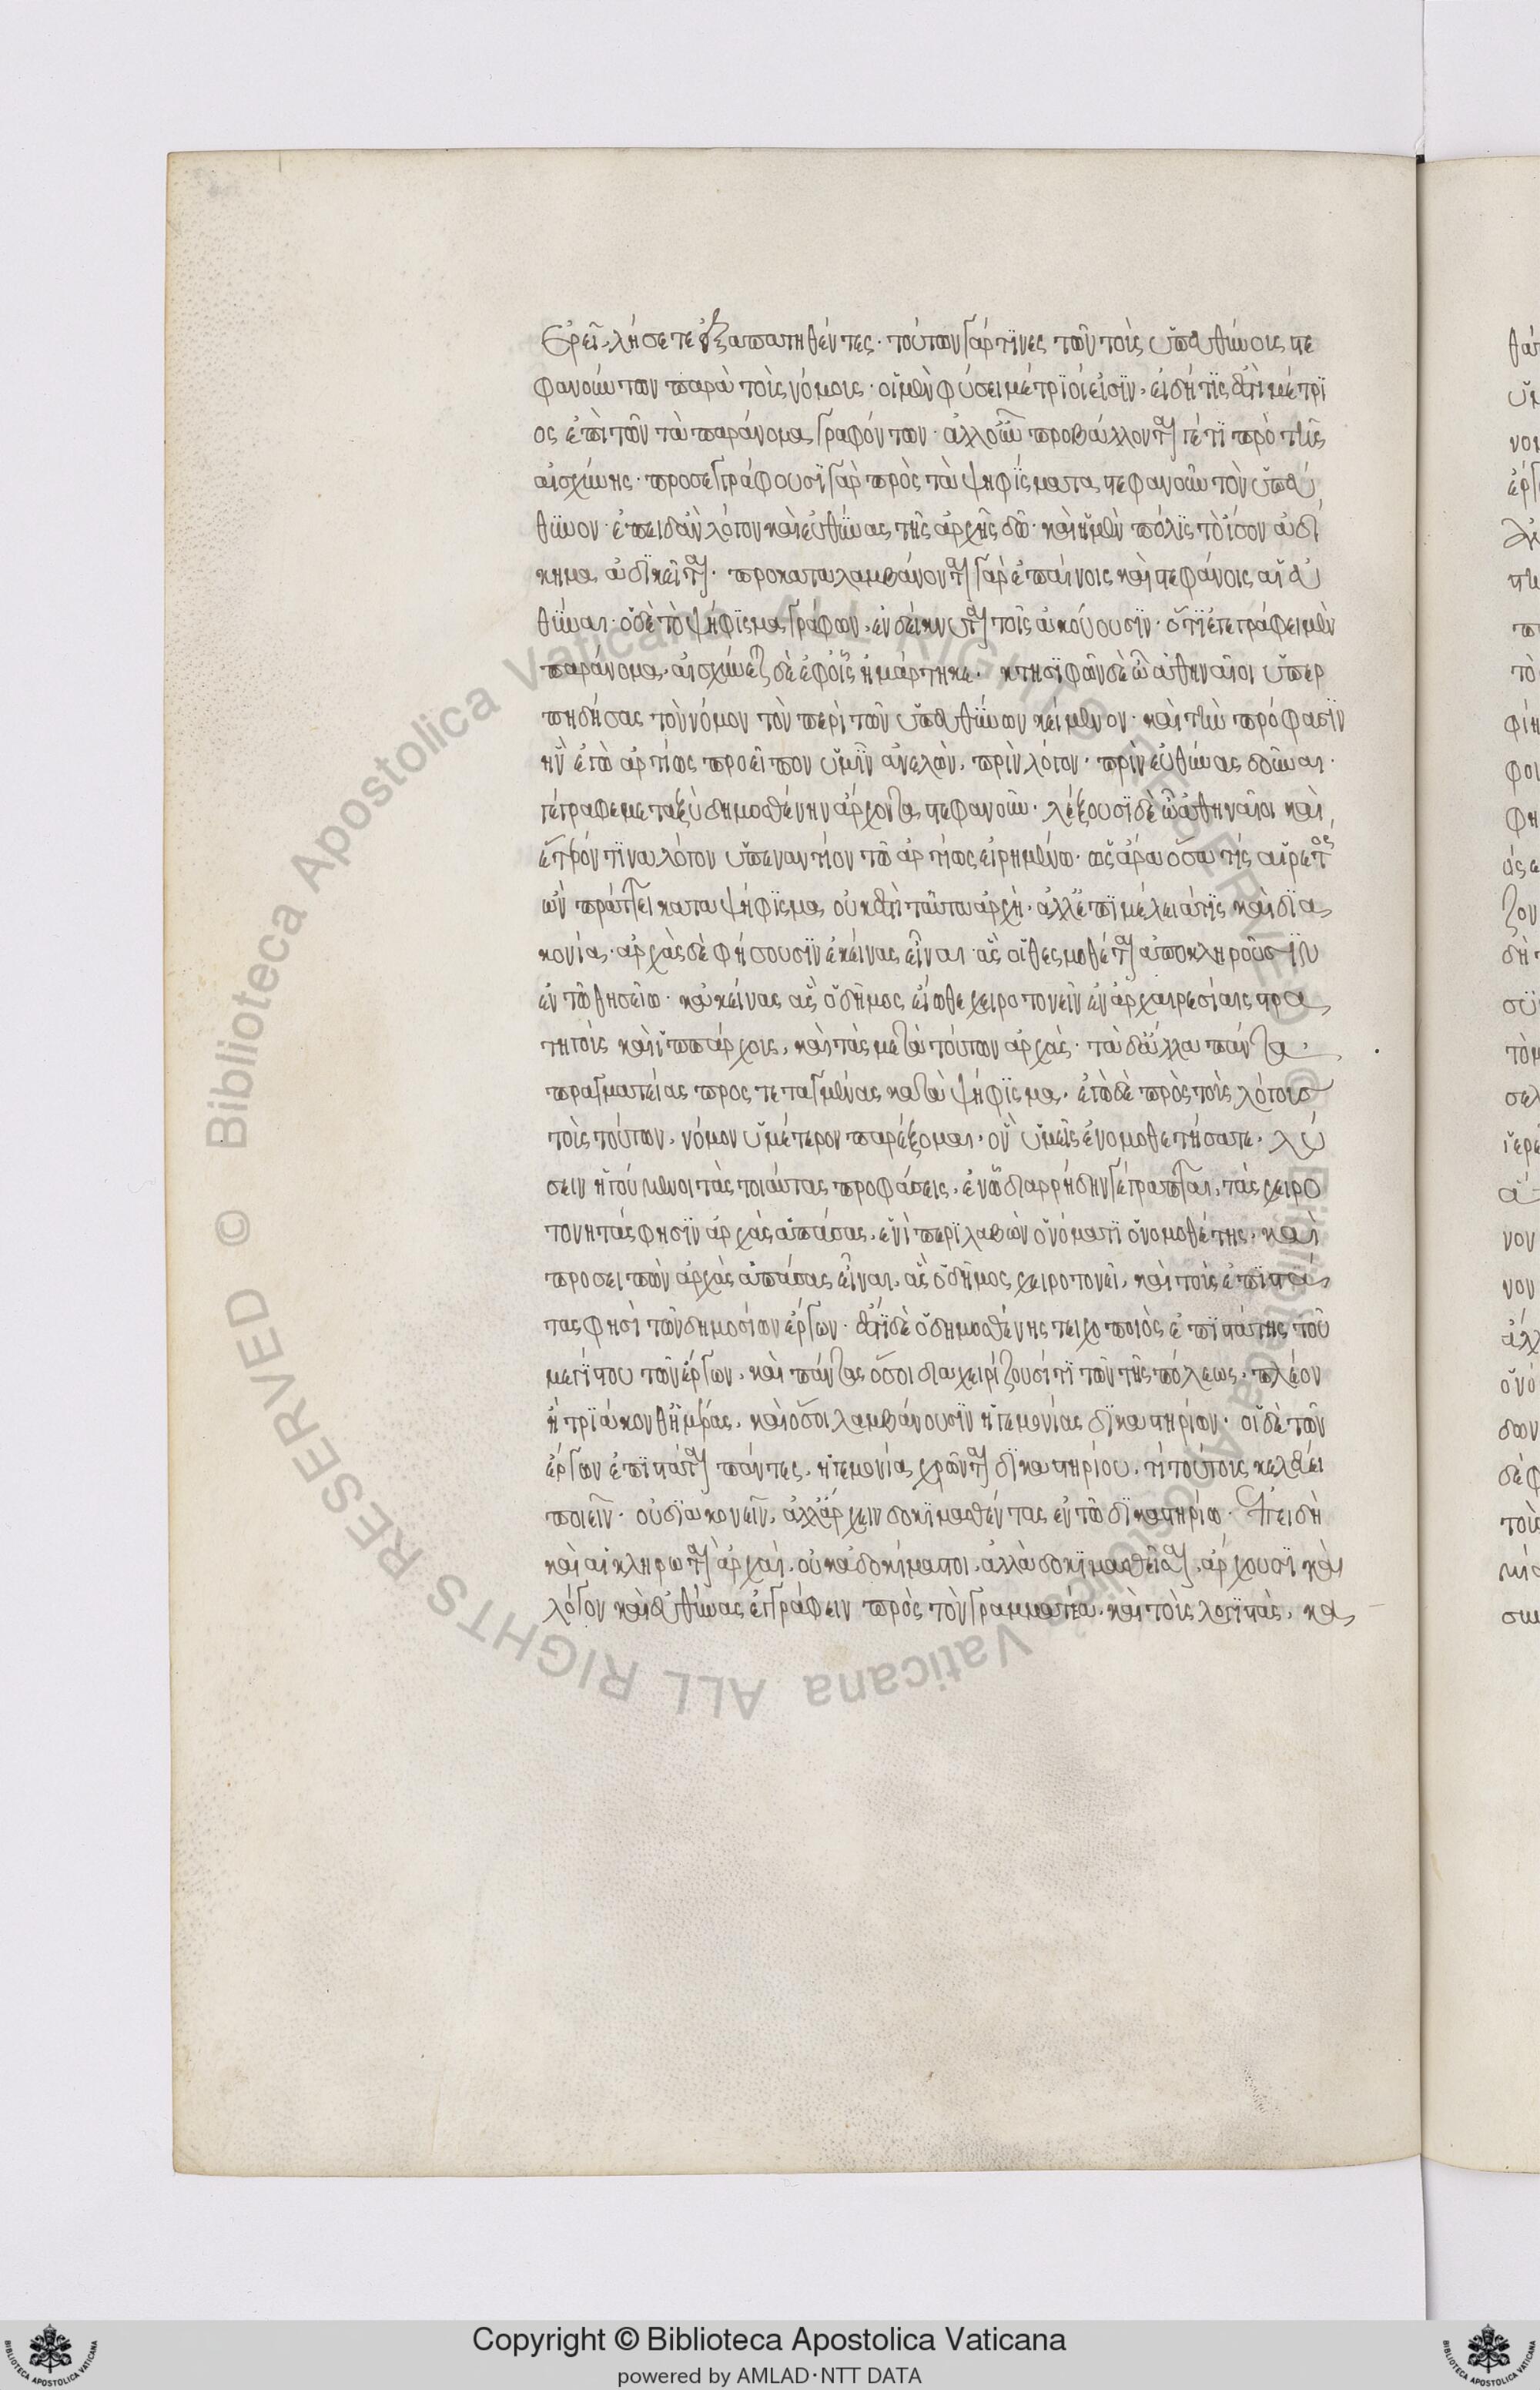 ἐρεῖ, λήσετε ἐξαπατηθέντες· τούτων γάρ τινες τῶν τοὺς ὑπευθύνους στε
φανούντων παρὰ τοὺς νόμους· οἱ μὲν φύσει μέτριοί εἰσιν, εἰ δή τίς ἐστι μέτρι
ος ἐπὶ τῶν τὰ παράνομα γραφόντων· ἀλλ' οὖν προβάλλονταί γέ τι πρὸ τῆς
αἰσχύνης· προσεγγράφουσι γὰρ πρὸς τὰ ψηφίσματα στεφανοῦν τὸν ὑπεύ
θυνον· ἐπειδὰν λόγον καὶ εὐθύνας τῆς ἀρχῆς δῶ· καὶ ἡ μὲν πόλις τὸ ἴσον ἀδί
κημα ἀδικεῖται· προκαταλαμβάνονται γὰρ ἐπαίνοις καὶ στεφάνοις αἱ εὔ
θυναι· ὁ δὲ τὸ ψήφισμα γράφων, ἐνδείκνυται τοῖς ἀκούουσιν· ὅτι γέγραφε μὲν
παράνομα, αἰσχύνεται δὲ ἐφ' οἷς ἡμάρτηκε· κτησιφῶν δὲ ὦ ἀθηναῖοι ὑπερ
πηδήσας τὸν νόμον τὸν περὶ τῶν ὑπευθύνων κείμενον· καὶ τὴν πρόφασιν
ἣν ἐγὼ ἀρτίως προεῖπον ὑμῖν ἀνελών, πρὶν λόγον· πρὶν εὐθύνας δοῦναι·
γέγραφε μεταξὺ δημοσθένην ἄρχοντα στεφανοῦν· λέξουσι δὲ ὦ ἀθηναῖοι καὶ
ἕτερόν τινα λόγον ὑπεναντίον τῶ ἀρτίως εἰρημένω· ὡς ἄρα ὅσα τίς αἱρετὸς
ὢν πράττει κατὰ ψήφισμα οὐκ ἔστι ταῦτα ἀρχὴ· ἀλλ' ἐπιμέλειά τις καὶ δια
κονία· ἀρχὰς δὲ φήσουσιν ἐκείνας εἶναι ἃς οἱ θεσμοθέται ἀποκληροῦσιν
ἐν τῶ θησείω· κἀκείνας ἃς ὁ δῆμος εἴωθε χειροτονεῖν ἐν ἀρχαιρεσίαις στρα
τηγοὺς καὶ ἱππάρχους, καὶ τὰς μετὰ τούτων ἀρχάς· τὰ δ' ἄλλα πάντα
πραγματείας προστεταγμένας κατὰ ψήφισμα, ἐγὼ δὲ πρὸς τοὺς λόγους
τοὺς τούτων, νόμον ὑμέτερον παρέξομαι, ὃν ὑμεῖς ἐνομοθετήσατε, λύ
σειν ἡγούμενοι τὰς τοιαύτας προφάσεις, ἐν ὧ διαρρήδην γέγραπται, τὰς χειρο
τονητάς φησιν ἀρχὰς ἁπάσας, ἑνὶ περιλαβὼν ὀνόματι ὁ νομοθέτης, καὶ
προσειπὼν ἀρχὰς ἁπάσας εἶναι, ἃς ὁ δῆμος χειροτονεῖ, καὶ τοὺς ἐπιστά
τας φησὶ τῶν δημοσίων ἔργων· ἔστι δὲ ὁ δημοσθένης τειχοποιὸς ἐπιστάτης τοῦ
μεγίστου τῶν ἔργων, καὶ πάντας ὅσοι διαχειρίζουσί τι τῶν τῆς πόλεως, πλέον
ἢ τριάκονθ' ἡμέρας, καὶ ὅσοι λαμβάνουσιν ἡγεμονίας δικαστηρίων· οἱ δὲ τῶν
ἔργων ἐπιστάται πάντες, ἡγεμονία χρῶνται δικαστηρίου, τί τούτους κελεύει
ποιεῖν· οὐ διακονεῖν, ἀλλ' ἄρχειν δοκιμασθέντας ἐν τῶ δικαστηρίω· Ἐπειδὴ
καὶ αἱ κληρωταὶ ἀρχαὶ, οὐκ ἀδοκίμαστοι, ἀλλὰ δοκιμασθεῖσαι, ἄρχουσι καὶ
λόγον καὶ εὐθύνας ἐγγράφειν πρὸς τὸν γραμματέα, καὶ τοὺς λογιστὰς, κα